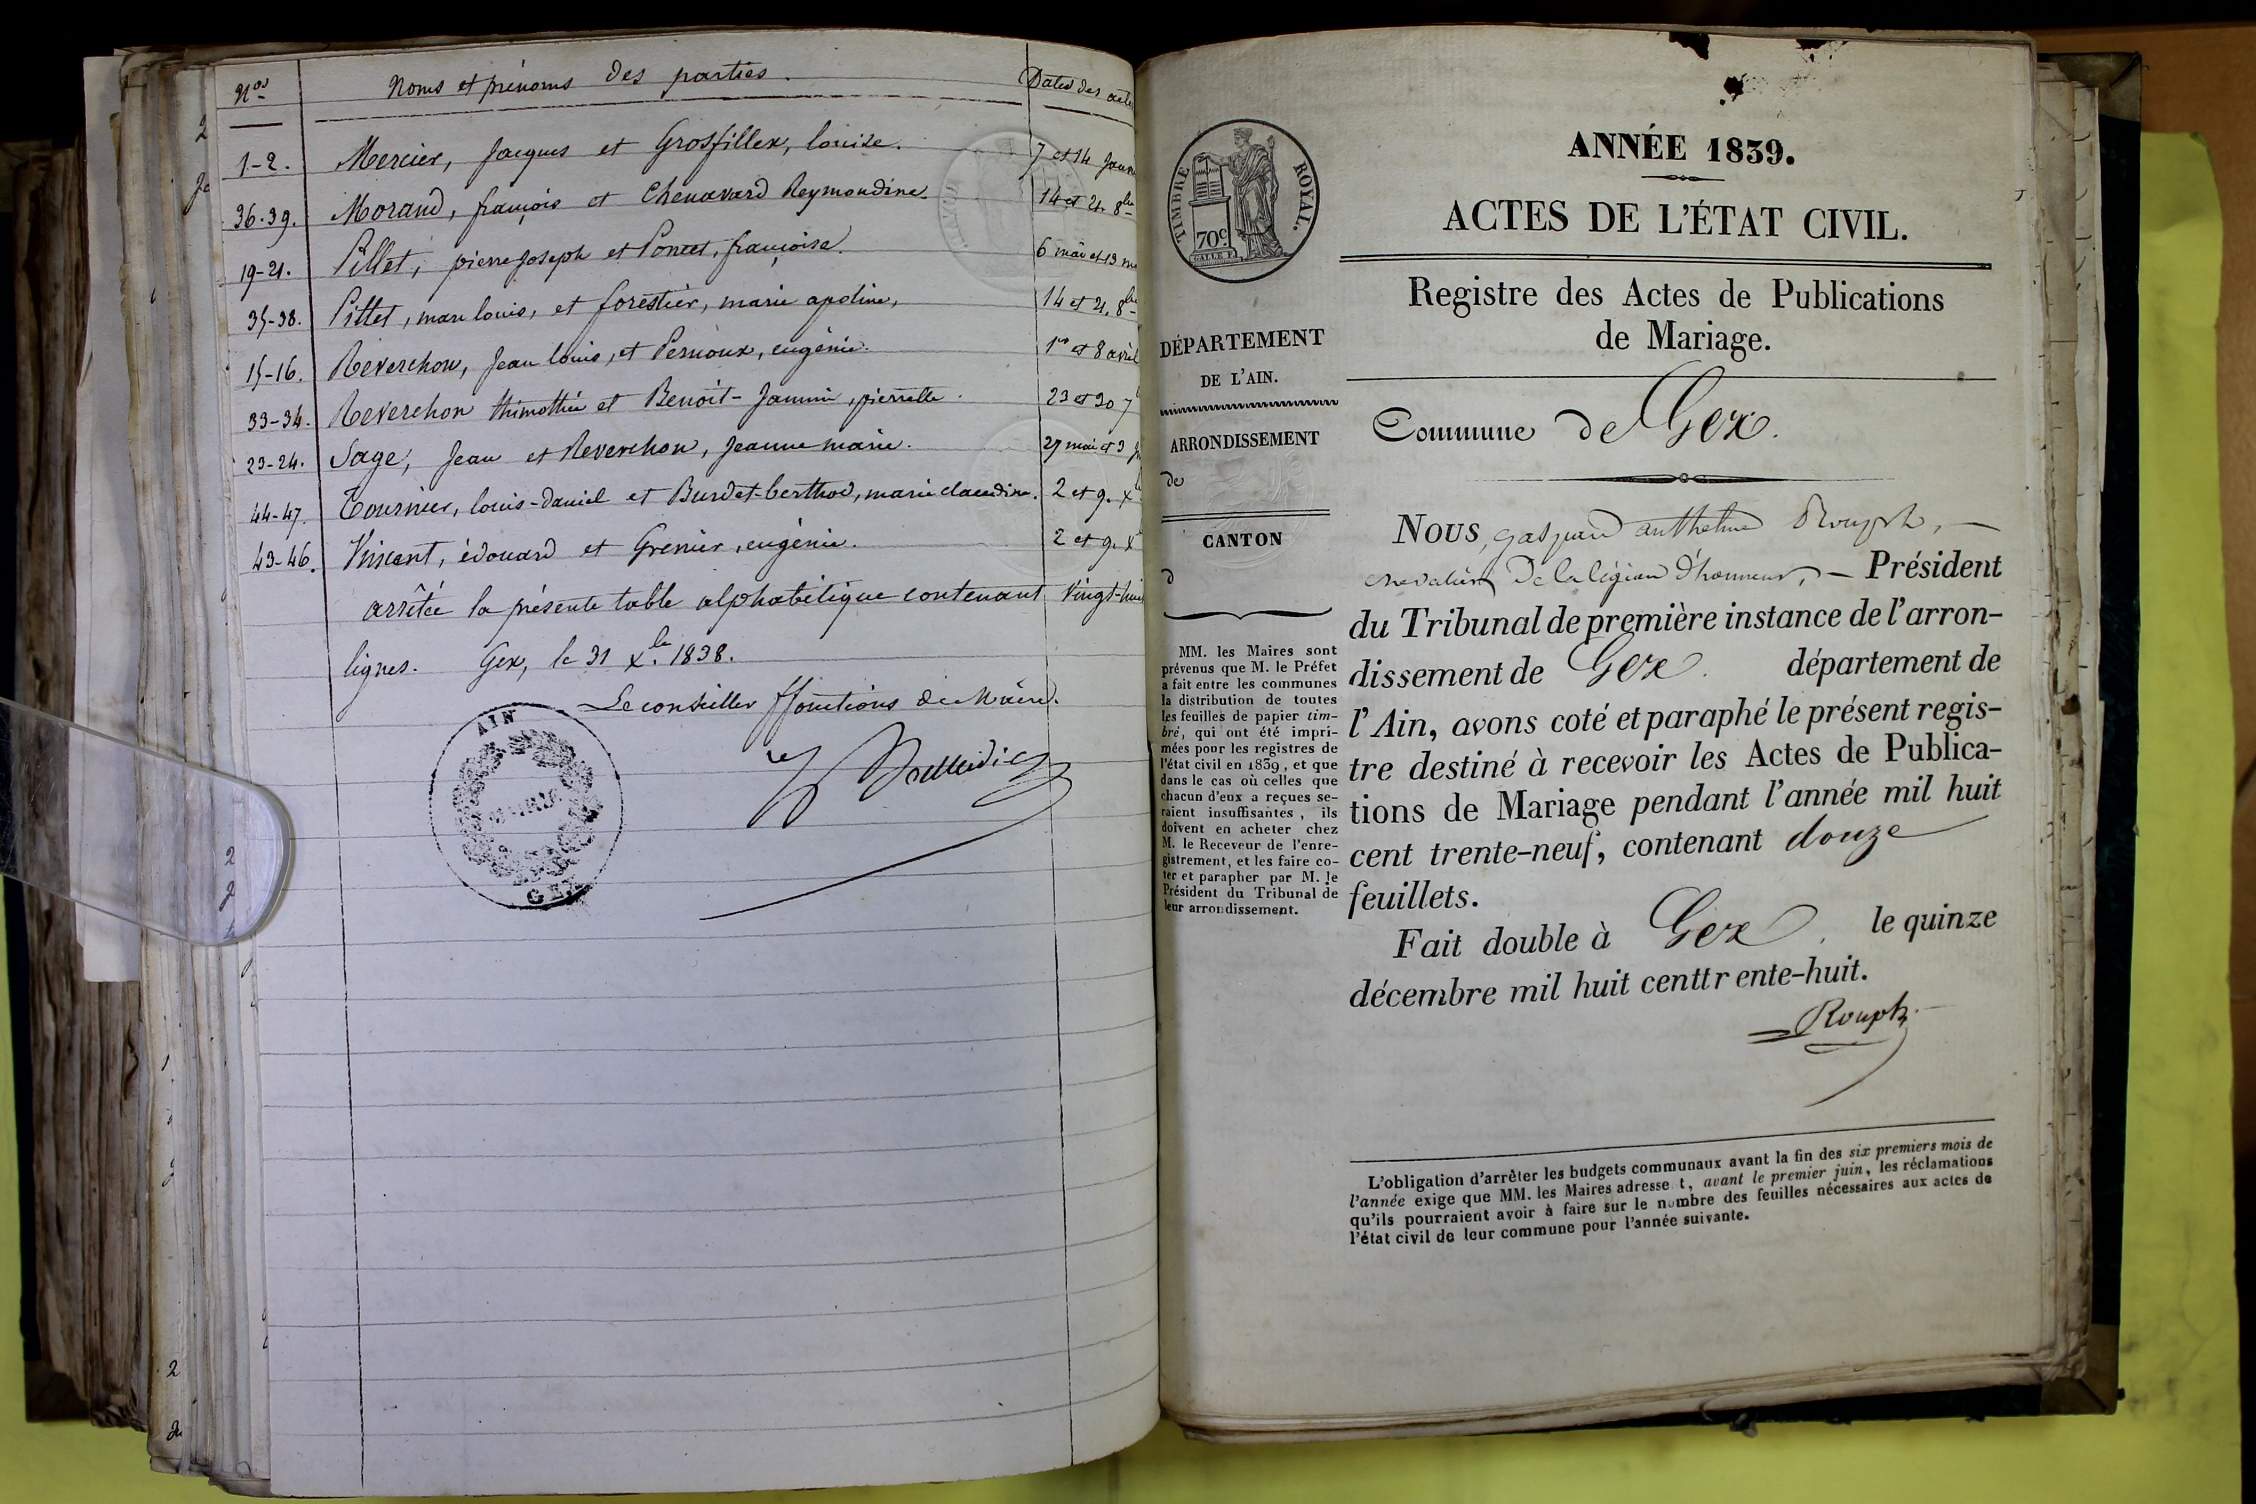 Nos Noms et prénoms des parties. Dates des actes
1-2. Mercier, Jacques et Grosfillex, louise. 7 et 14 Janv
36-39. Morand, françois et Chenavard Reymondine. 14 et 21. 8bre
19-21. Pillet, pierre Joseph et Poncet, françoise. 6 mai et 13 m
35-38. Pittet, marc louis, et forestier, marie apoline, 14 et 21. 8bre
15-16. Reverchon, Jean louis, et Pernoux, eugénie. 1er et 8 avril
33-34. Reverchon thimothée et Benoit-Jannin, pierrette. 23 et 30 7
23-24. Sage, Jean et Reverchon, Jeanne marie. 27 mai et 3 J
44-47. Tournier, louis-daniel et Burdet-berthod, marie claudine. 2 et 9. X
43-46. Vincent, édouard et Grenier, eugénie. 2 et 9. X
arrêtée la présente table alphabétique contenant vingt-huit
lignes. Gex, le 31 Xbre 1838.
Le conseiller ffonctions de Maire.
AIN
MAIRIE
GEX
ANNÉE 1839.
ACTES DE L'ÉTAT CIVIL.
Registre des Actes de Publications
de Mariage.
TIMBRE ROYAL.
70c
DÉPARTEMENT
DE L'AIN.
ARRONDISSEMENT
de
CANTON
d
MM. les Maires sont
prévenus que M. le Préfet
a fait entre les communes
la distribution de toutes
les feuilles de papier tim-
bré, qui ont été impri-
mées pour les registres de
l'état civil en 1839, et que
dans le cas où celles que
chacun d'eux a reçues se-
raient insuffisantes, ils
doivent en acheter chez
M. le Receveur de l'enre-
gistrement, et les faire co-
ter et parapher par M. le
Président du Tribunal de
leur arrondissement.
Commune de Gex.
Nous, gaspard anthelme Rouph,
chevalier De la légion d'honneur, Président
du Tribunal de première instance de l'arron-
dissement de Gex. département de
l'Ain, avons coté et paraphé le présent regis-
tre destiné à recevoir les Actes de Publica-
tions de Mariage pendant l'année mil huit
cent trente-neuf, contenant douze
feuillets.
Fait double à Gex, le quinze
décembre mil huit centtr ente-huit.
Rouph
L'obligation d'arrêter les budgets communaux avant la fin des six premiers mois de
l'année exige que MM. les Maires adresse t, avant le premier juin, les réclamations
qu'ils pourraient avoir à faire sur le nombre des feuilles nécessaires aux actes de
l'état civil de leur commune pour l'année suivante.